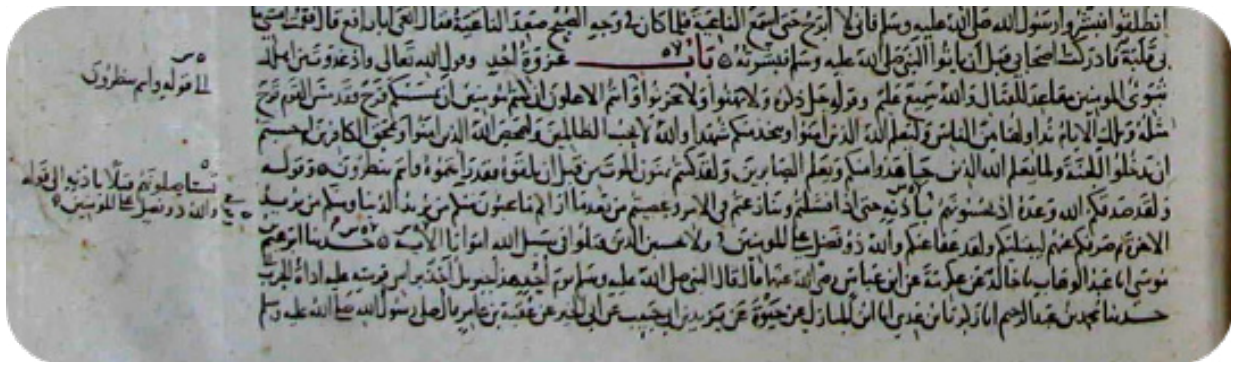 انطلقوا فبشروا رسول الله صلى الله عليه وسلم فاني لا ابرح حتى اسمع الناعية فلما كان في وجه الصبح صعد الناعية فقال انعى ابا رافع قال فقمت امشي ما
بي قلبة فادركت اصحابي قبل ان ياتوا النبي صلى الله عليه وسلم فبشرته باب غزوة احد وقول الله تعالى واذ غدوت من اهلك
تبوئ المومنين مقاعد للقتال والله سميع عليم وقوله جل ذكره ولا تهنوا ولا تحزنوا وانتم الاعلون ان كنتم مومنين ان يمسسكم قرح فقد مس القوم قرح
مثله وتلك الايام نداولها بين الناس وليعلم الله الذين امنوا ويتخذ منكم شهدا والله لا يحب الظالمين وليمحص الله الذين امنوا ويمحق الكافرين ام حسبتم
ان تدخلوا الجنة ولما يعلم الله الذين جاهدوا منكم ويعلم الصابرين ولقد كنتم تمنون الموت من قبل ان تلقوه فقد رايتموه وانتم تنظرون وقوله
ولقد صدقكم الله وعده اذ تحسونهم باذنه حتى اذا فشلتم وتنازعتم في الامر وعصيتم من بعد ما اراكم ما تحبون منكم من يريد الدنيا ومنكم من يريد
الاخرة ثم صرفكم عنهم ليبتليكم ولقد عفا عنكم والله ذو فضل على المومنين ولا تحسبن الذين قتلوا في سبيل الله امواتا الاية حدثنا ابرهيم
بن موسى انا عبد الوهاب نا خالد عن عكرمة عن ابن عباس رضي الله عنهما قال قال النبي صلى الله عليه وسلم يوم احد هذا جبريل اخذ براس فرسه عليه اداة الحرب
حدثنا محمد بن عبد الرحيم انا زكريا بن عدي انا ابن المبارك عن حيوة عن يزيد بن ابي حبيب عن ابي الخير عن عقبة بن عامر قال صلى رسول الله صلى الله عليه وسلم
الى قوله وانتم تنظرون
تستاصلونهم قتلا باذنه الى قوله
والله ذو فضل على المومنين